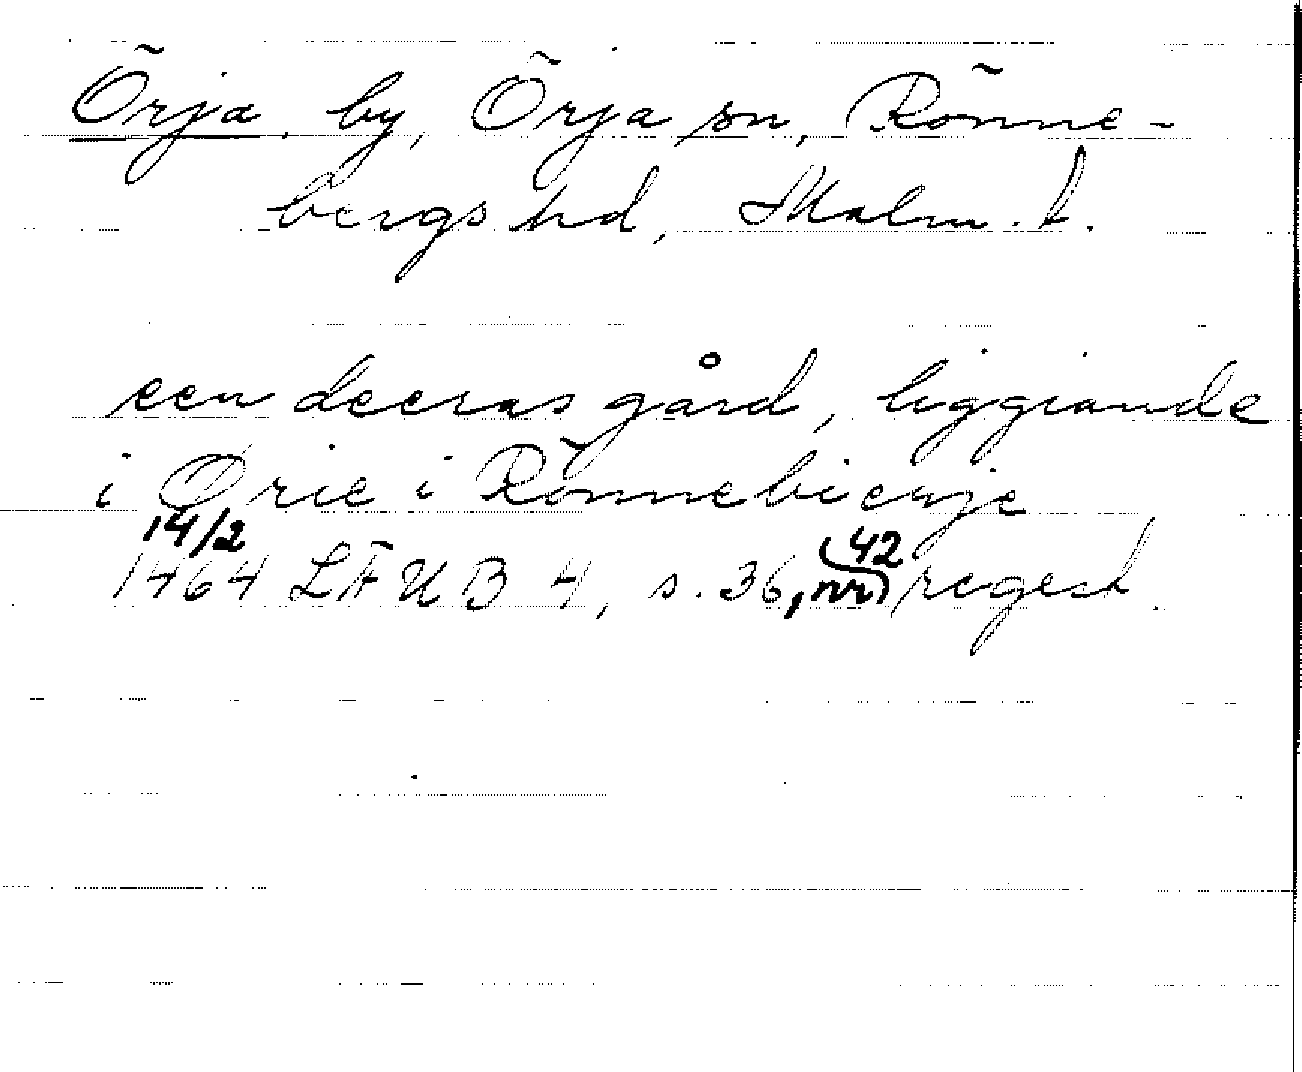 Örja by, Örja sn, Rönne-
bergs hd, Malm. l.
een deeras gård, liggiande
i Ørie i Rönnebierge
14/2
1464 LÄUB 4, s. 36, nr 42 regest.